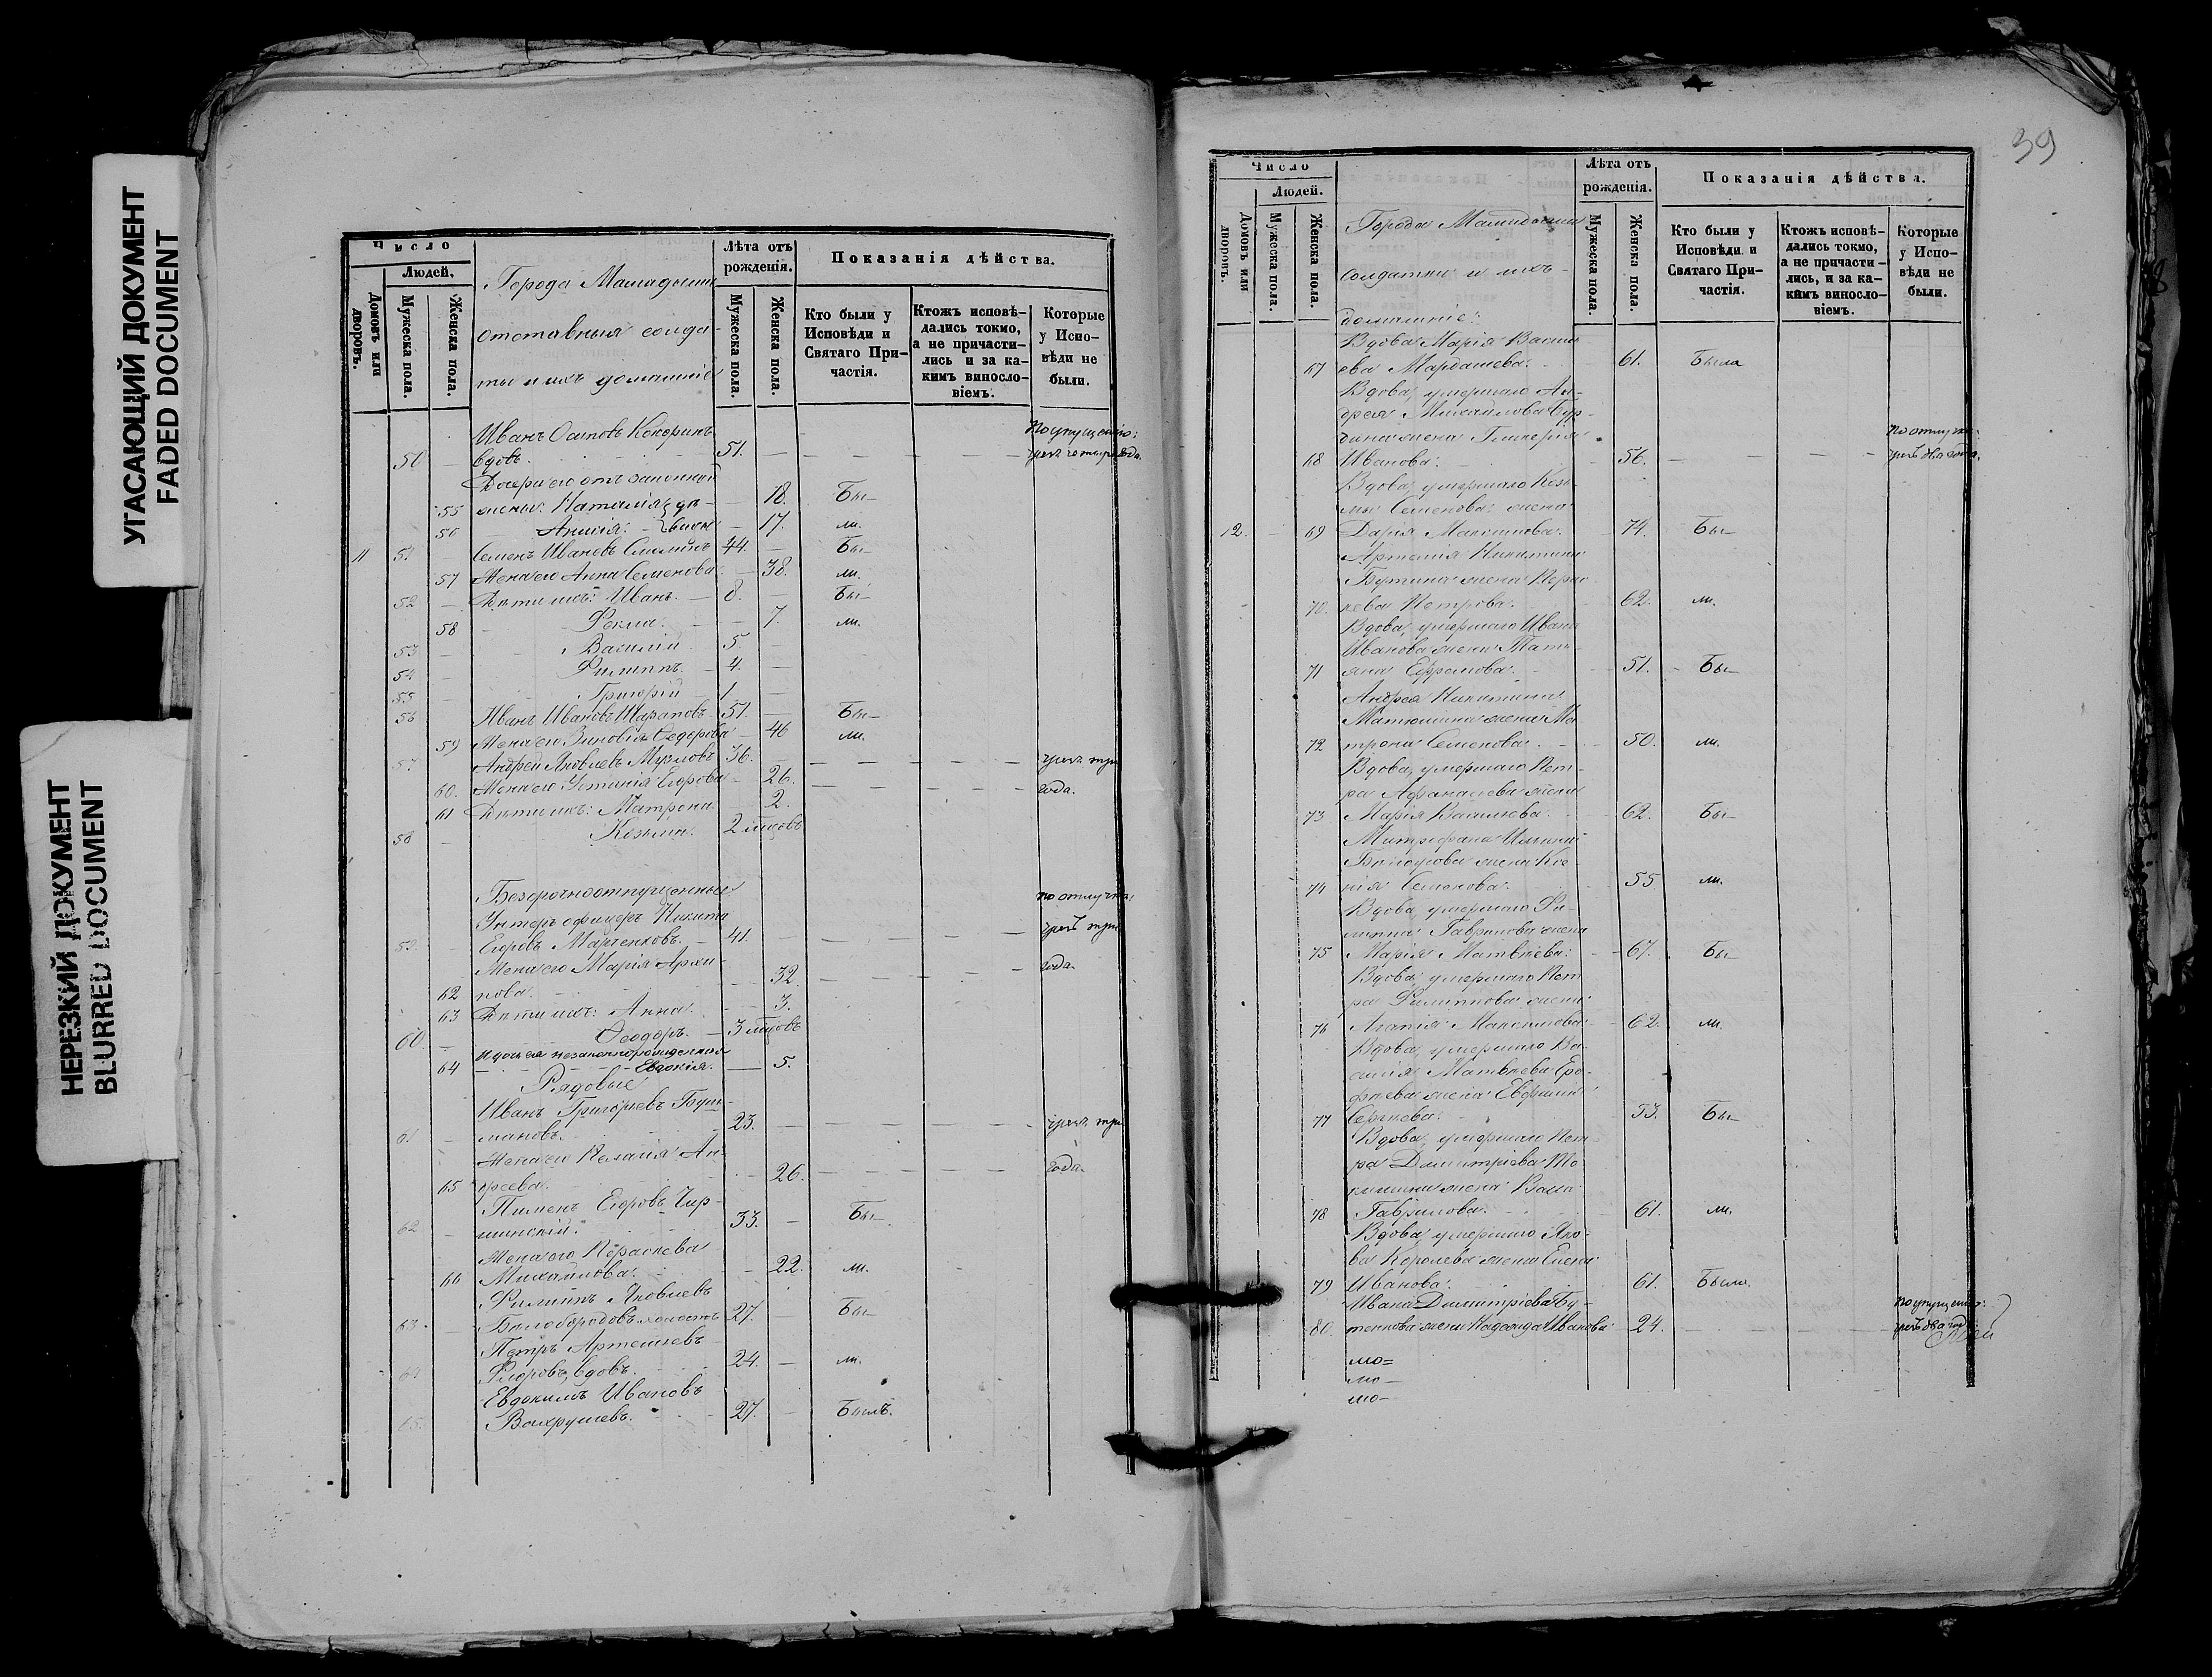 УГАСАЮЩИЙ ДОКУМЕНТ
FADED DOCUMENT
НЕРЕЗКИЙ ДОКУМЕНТ
BLURRED DOCUMENT
Число
Людей.
Домовъ или дворовъ.
Мужеска пола.
Женска пола.
Города Мамадыша
отставныя солда-
ты и ихъ домашніе
Лѣта отъ рожденія.
Мужеска пола.
Женска пола.
Показанія дѣйства.
Кто были у Исповѣди и Святаго При-частія.
Ктожъ исповѣ-дались токмо, а не причасти-лись и за ка-кимъ виносло-віемъ.
Которые у Испо-вѣди не были.
Иванъ Осиповъ Кокоринъ
50 вдовъ. 51.
Дочери его отъ законной
55 жены: Наталія 18. Бы-
56 Анисія: 17. ли.
11 51 Семенъ Ивановъ 44. Бы-
57 Жена его Анна Семенова 38. ли.
52 Дѣти ихъ: Иванъ. 8. Бы-
58 Фекла. 7. ли.
53 Василій 5
54 Филиппъ. 4.
55 Григорій 1
56 Иванъ Ивановъ Шараповъ. 51. Бы-
59 Жена его Зиновія Ѳедорова 46 ли.
57 Андрей Яковлевъ 36. три
60. Жена его Устинія Егорова 26. года.
61 Дѣти ихъ: Матрона 2.
58 Козьма. 2 мѣсяцовъ
Безсрочноотпущенные
Унтеръ офицеръ Никита по отлучкѣ
59. Егоровъ Марченковъ. 41. три
Жена его Марія Архи- года.
62 пова. 32.
63 Дѣти ихъ: Анна. 3.
60. Ѳеодоръ. 3 мѣсяцовъ
незаконнорожденная
64 Евдокія. 5.
Рядовые
Иванъ Григорьевъ
61 23. три
Жена его Пелагія Ан- года.
65 дреева. 26.
Пименъ Егоровъ Чир-
62 шинскій. 33. Бы-
Жена его Параскева
66 Михаилова. 22. ли.
Филиппъ Яковлевъ
63 Бѣлобородовъ холостъ 27. Бы-
Петръ Артемьевъ
64 вдовъ. 24. ли.
Евдокимъ Ивановъ
65. Вахрушевъ. 27. Былъ.
39
Число
Людей.
Домовъ или дворовъ.
Мужеска пола.
Женска пола.
Города Мамадыша
солдатки и ихъ
домашніе:
Лѣта отъ рожденія.
Мужеска пола.
Женска пола.
Показанія дѣйства.
Кто были у Исповѣди и Святаго При-частія.
Ктожъ исповѣ-дались токмо, а не причасти-лись, и за ка-кимъ виносло-віемъ.
Которые у Испо-вѣди не были.
Вдова Марія Василь
67 ева Мардашева. 61. Была
Вдова, умершаго Ан-
дрея Михайлова Бур-
жена Гликерія по отлучкѣ
68 Иванова. 56. два года.
Вдова, умершаго Козь-
мы Семенова жена
12. 69 Дарія Максимова. 74. Бы-
Никитина
Бутина жена Парас
70. кева Петрова. 62. ли.
Вдова, умершаго Ивана
Иванова жена Тать-
71 яна Ефремова. 51. Бы-
Андрея Никитина
Матюшина жена Ма
72 трона Семенова. 50. ли.
Вдова, умершаго Пет-
ра Афанасьева жена
73 Марія Васильева. 62. Бы-
Митрофана
Бѣлоусова жена Ксе-
74 нія Семенова. 55 ли.
Вдова, умершаго Фи-
липпа Гаврилова жена
75 Марія Матвѣева. 67. Бы-
Вдова, умершаго Пет
ра Филиппова жена
76 Агапія Максимова. 62. ли.
Вдова, умершаго Ва-
силія Матвѣева Еро-
фѣева жена Евфимія
77 Сергѣева. 53. Бы-
Вдова, умершаго Пет
ра Димитріева
жена
78 Гаврилова. 61. ли.
Вдова, умершаго Яко-
ва Королева жена Елена
79 Иванова. 61. Была.
Ивана Димитріева Бу- по упущенію:
80. жена Надежда Иванова 24. два года
мо=
мо-
мо-